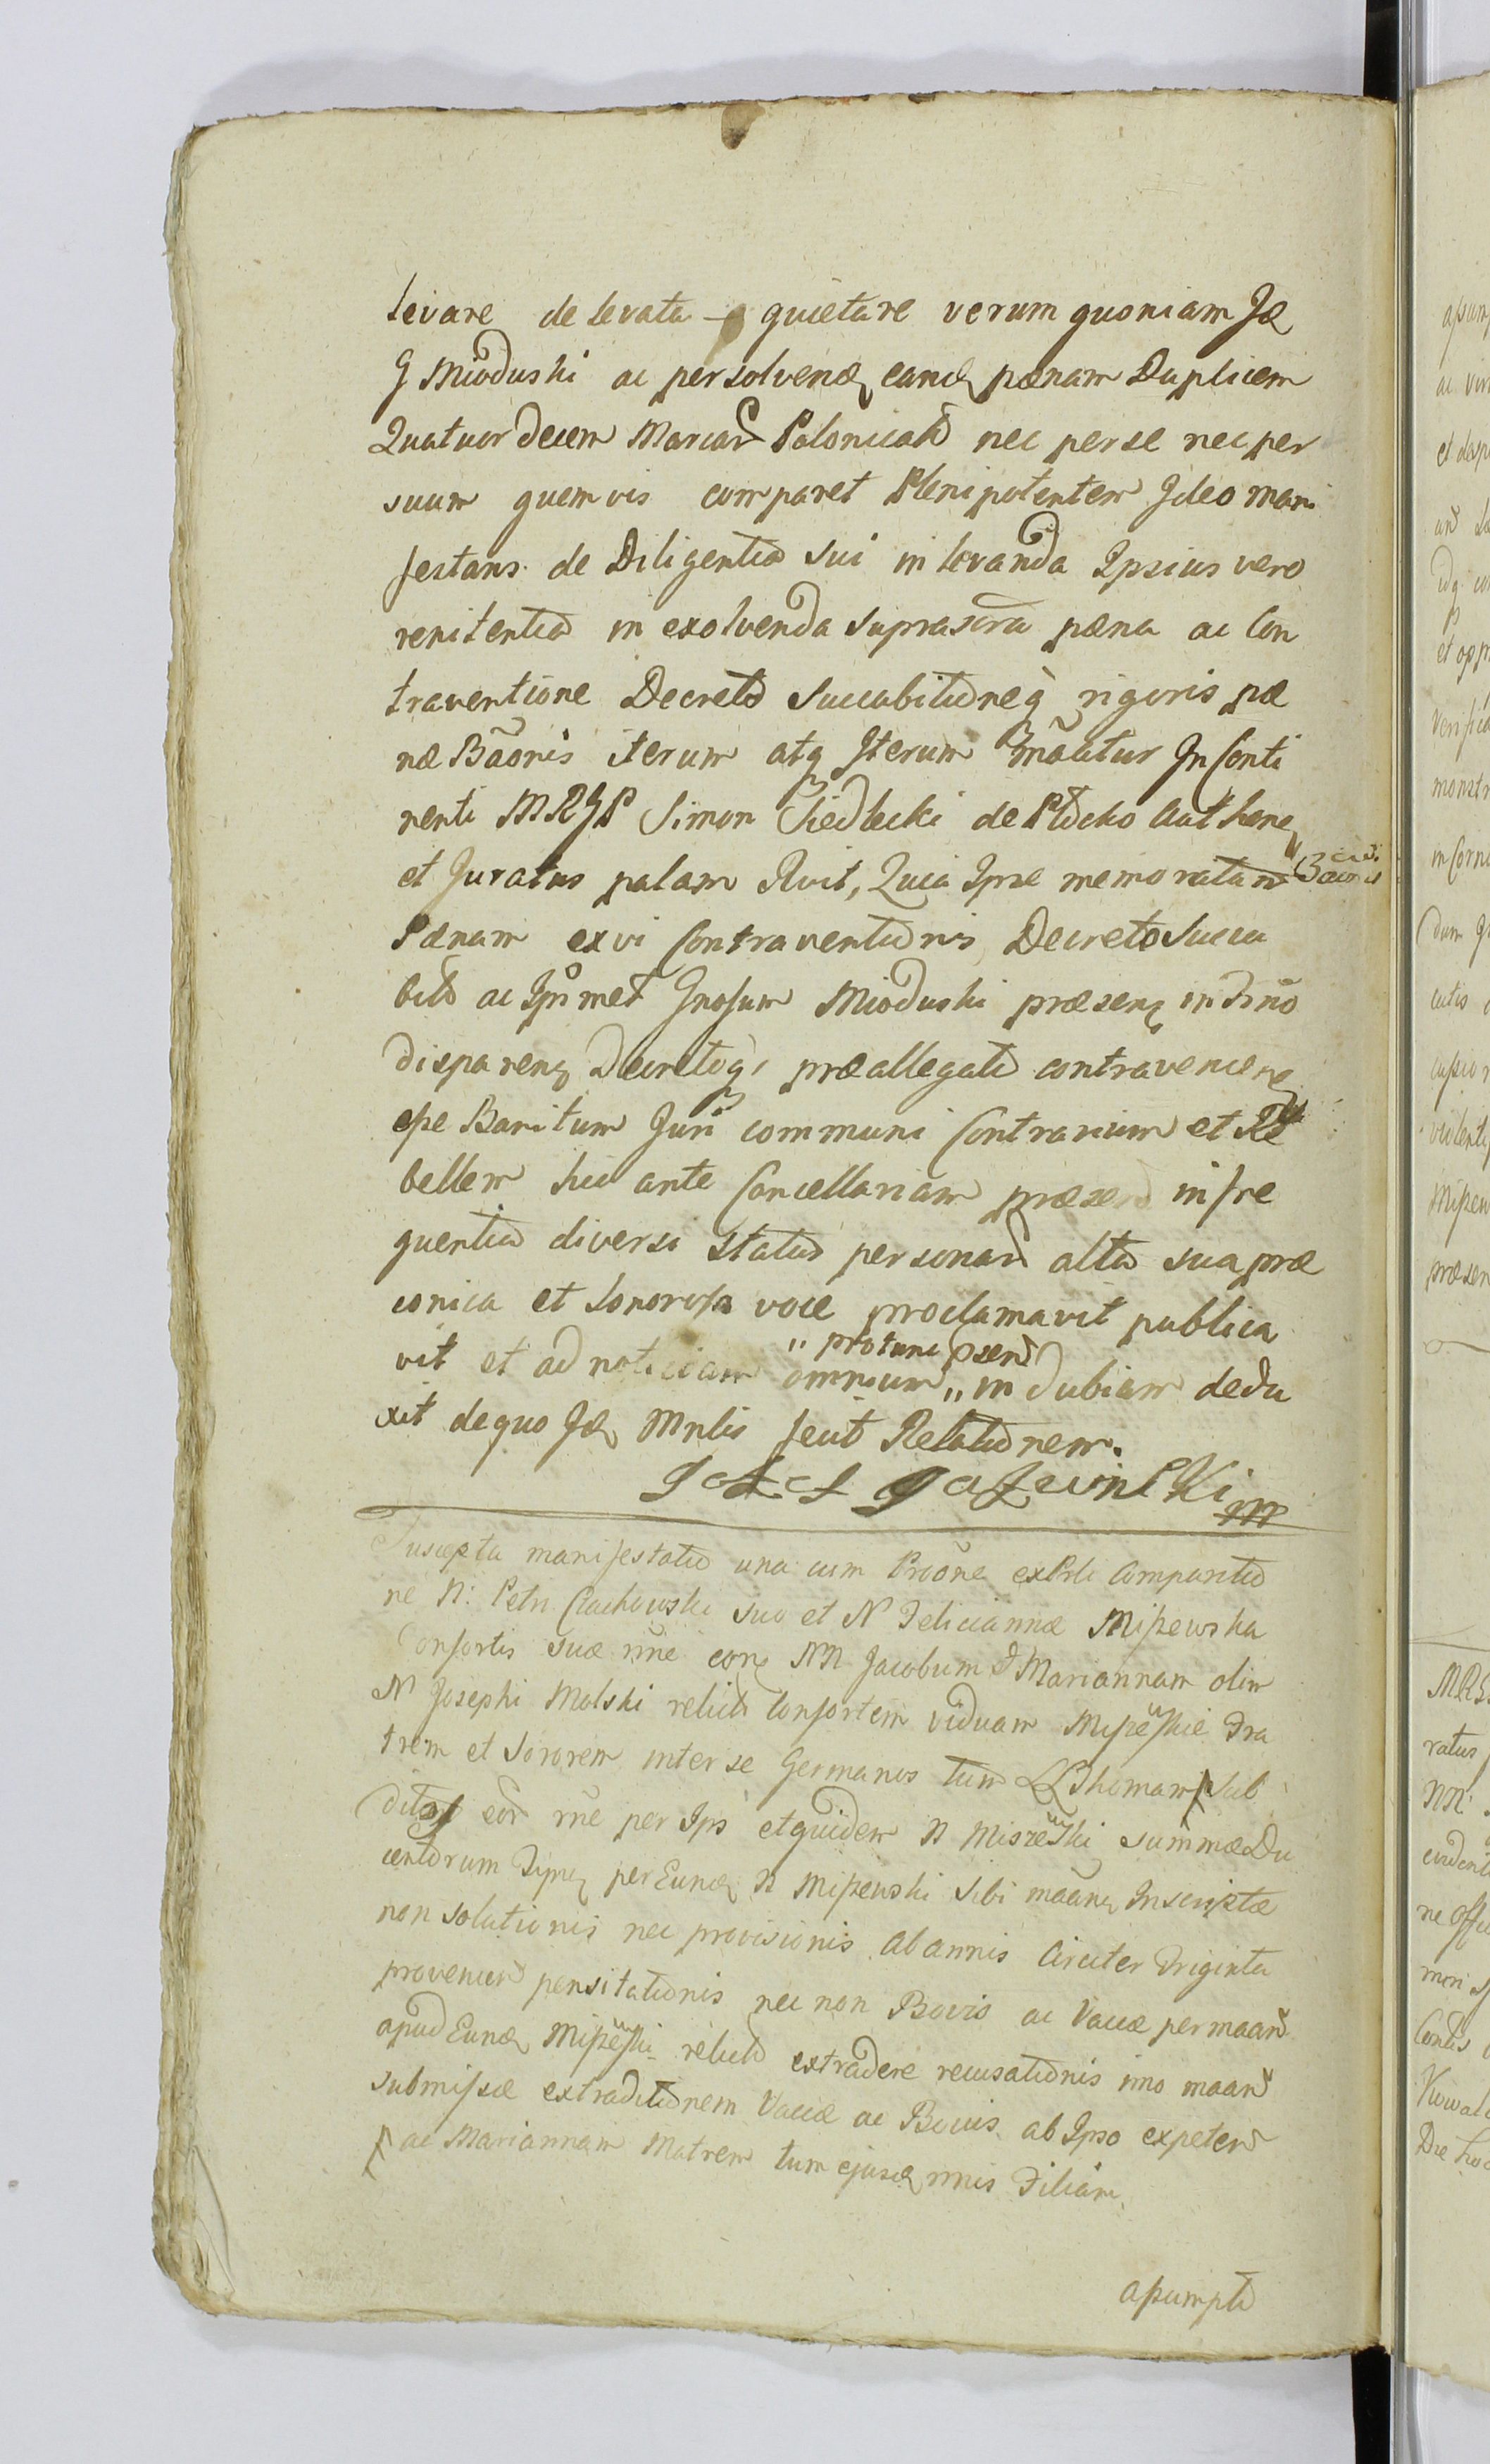 levare de levata quietare verum quoniam Id
G Mioduski ac persolvend eand pænam Duplicem
Quatuor decem Marcar Polonical nec per se nec per
suum quemvis comparet Plenipotentem Ideo mani
festans de Diligentia sui in levanda Ipsius vero
renitentia in exolvenda suprascra pæna ac Con
traventione Decreto succubitioneq rigoris pæ
næ Bãoris iterum atq Iterum mãatur In Conti
nenti MRGP Simon Siedlecki de Plocko Authen
et Juratus palam Rvit, Quia Ipse memoratam
Pænam ex vi Contraventionis Decreto Succu
bito ac Ipsmet Gnosum Mioduski præsen in Trno
disparen Decretoq præallegato contravenien
esse Banitum Juri communi Contrarium et Re
bellem hic ante Cancellariam præsen in fre
quentia diversi status personar alta sua præ
conica et sonorosa voce proclamavit publica
" protunc psen
vit et ad noticiam omnium " indubiam dedu
xit de quo Id Mnlis fecit Relationem.
Suscepta manifestatio una cum Prõone ex Prli Comparitio
ne N: Petri Ciachowski suo et N Feliciannæ Miszewska
Consortis suæ nñe con NN Jacobum & Mariannam olim
N Josephi Molski relict Consortem viduam Miszewskie Fra
trem et Sororem inter se Germanos tum LL Thomam Sub
ditos eor rñe per Ips et quidem N Miszewski summæ Du
centorum Tymp per Eund N Miszewski sibi maan Inscriptæ
non solutionis nec provisionis ab annis Circiter Triginta
provenien pensitationis nec non Bovis ac Vaccæ per maan
apud Eund Miszewski relict extradere recusationis imo maan
submissæ extraditionem Vaccæ ac Bovis ab Ipso expeten
ac Mariannam Matrem tum ejusd nnis Filiam
assumpti